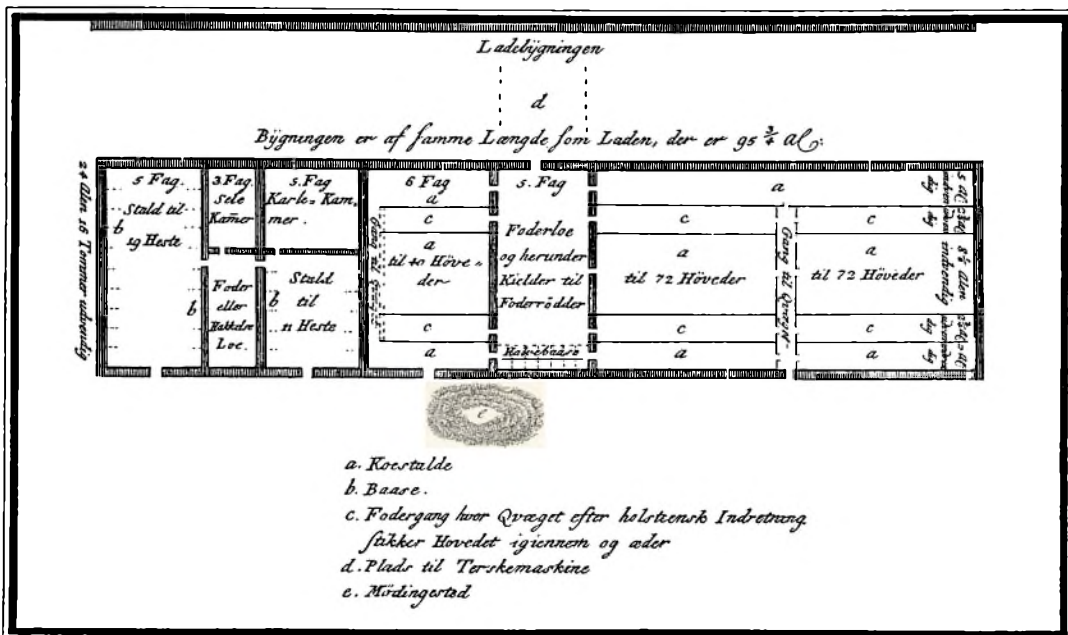 Ladebÿgningen
d
Bÿgningen er af samme Længde som Laden, der er 95 3/4 Al:
24 Alen 16 Tommer udvendig
5 Fag.
Stald til
b
19 Heste
b
3. Fag.
Sele
Kamer
Foder
eller
Hakkelse
Loe.
5. Fag
Karle-Kam,
mer.
Stald
b til
11 Heste
6 Fag
a
c
a
til 40 Höve-
der
c
a
5. Fag
Foderloe
og herunder
Kielder til
Foderrödder
Kalvebaase
a
c
a
til 72 Höveder
c
a
Gang til Qvæget
c
a
til 72 Höveder
c
a
8½ Alen
a. Koestalde
b. Baase.
c. Fodergang hvor Qvæget efter holsteensk Indretning
stikker Hovedet igiennem og æder
d. Plads til Terskemaskine
e. Mödingsted
e